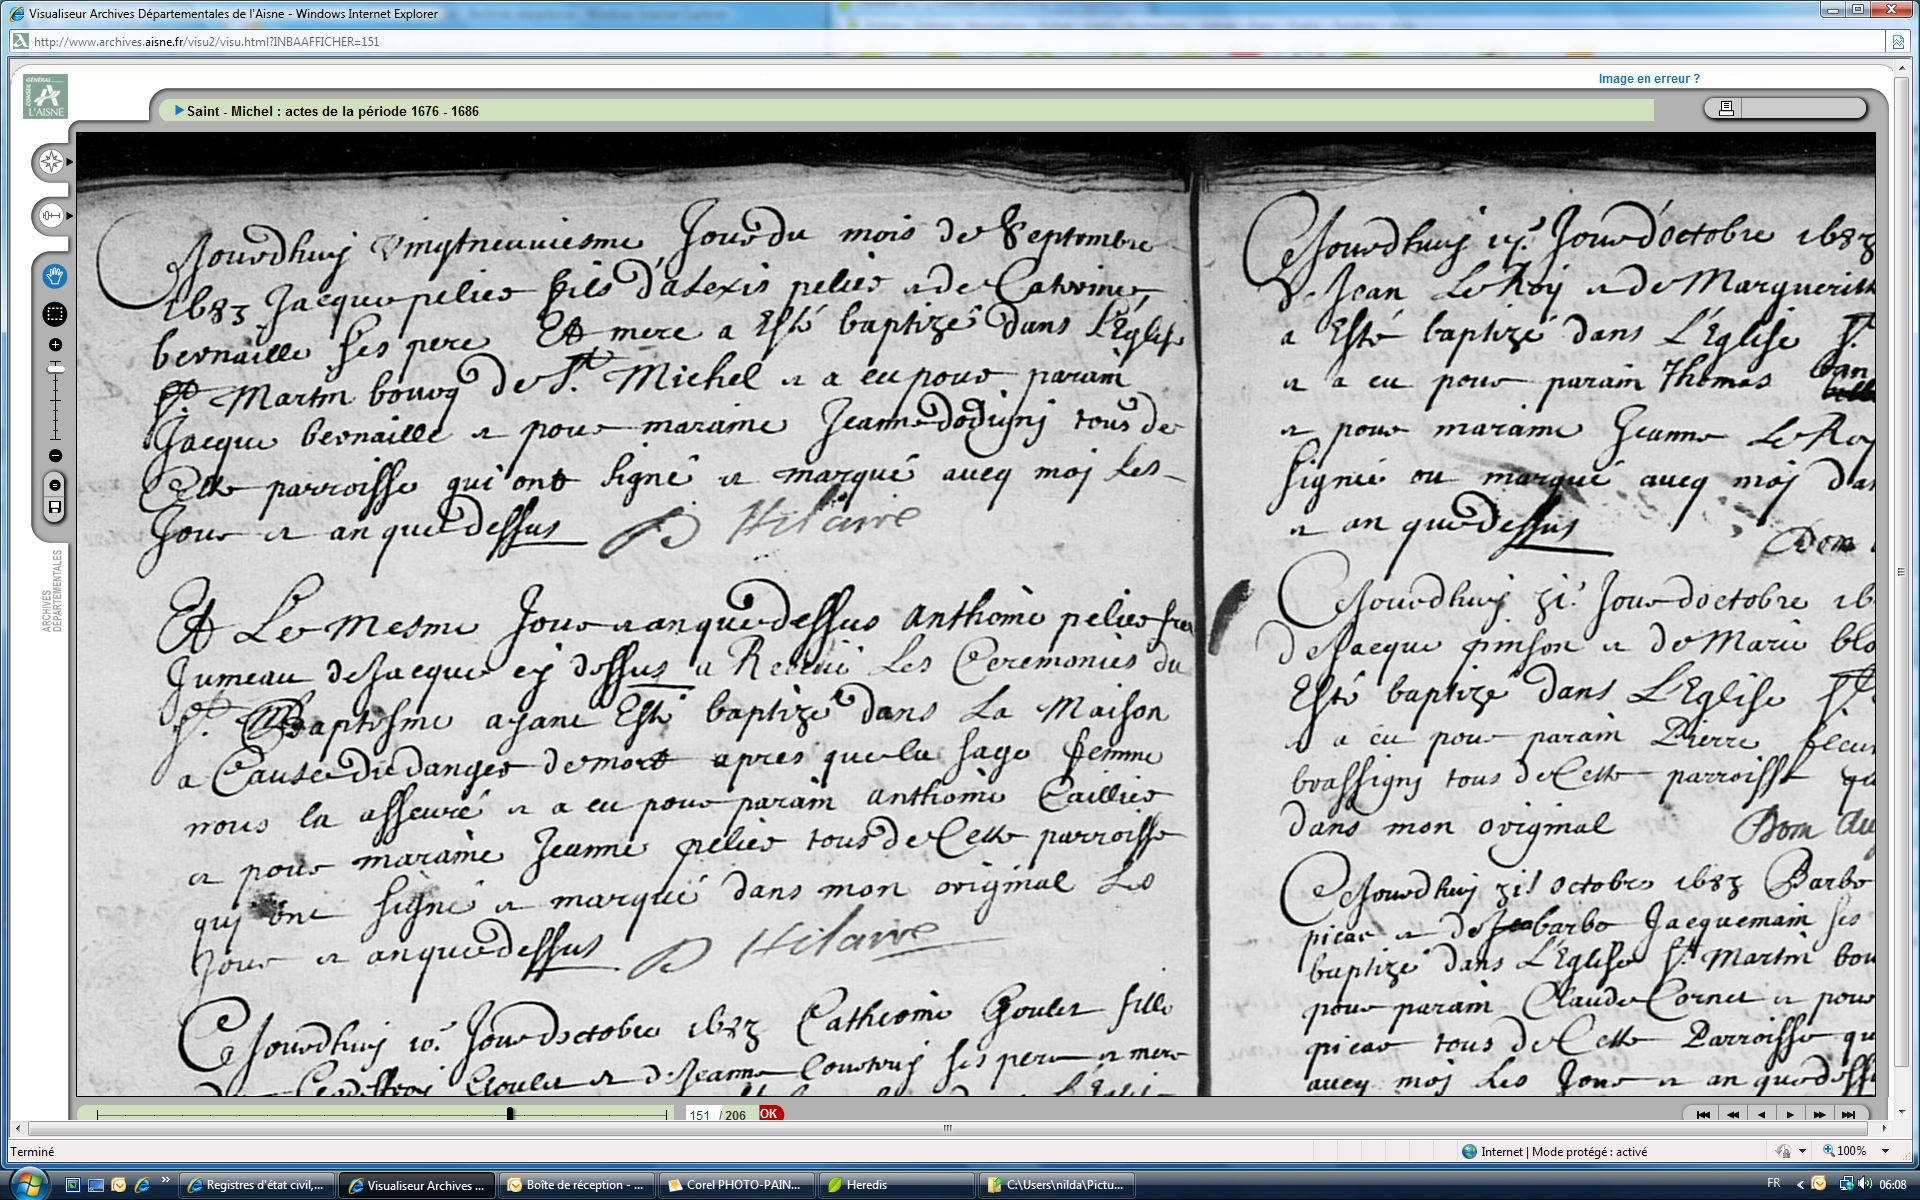 Visualiseur Archives Départementales de l'Aisne - Windows Internet Explorer
http://www.archives.aisne.fr/visu2/visu.html?INBAAFFICHER=151
Image en erreur ?
CONSEIL GÉNÉRAL
L'AISNE
Saint - Michel : actes de la période 1676 - 1686
ARCHIVES DÉPARTEMENTALES
Cejourdhuij vingtneuviesme Jour du mois de Septembre
1683 Jacque pelier fils d'alexis pelier et de Caterine
bernaille ses pere Et mere a Esté baptizé dans L'Eglise
St Martin bourq de St. Michel et a eu pour parain
Jacque bernaille et pour maraine Jeanne dodigni tous de
Cette parroisse qui ont signé et marqué aucq moj les
Jour et an que dessus D Hilaire
Et Le Mesme Jour et an que dessus Anthoine pelier frer
Jumeau de Jacque cij dessus a Receu Les Ceremonies du
St. Baptesme ayant Esté baptizé dans La Maison
a Cause du danger de mort apres que la sage femme
nous la asseuré et a eu pour parain Anthoine Caillier
et pour maraine Jeanne pelier tous de Cette parroisse
qui ont signé et marqué dans mon original les
Jour et an que dessus D Hilaire
Cejourdhuij 10e Jour doctobre 1683 Catherine Goulet fille
Goulet et de Jeanne ses pere et mere
L'Eglise
Cejourdhuij Jour d'octobre 1683
de Jean Le Roy et de Marguerite
a Esté baptizé dans L'Eglise St.
et a eu pour parain Thomas
et pour maraine Jeanne Le Roy
signé ou marqué aucq moj
et an que dessus Dom
Cejourdhuij 31e Jour doctobre 16
de Jacque pinson et de Marie
Esté baptizé dans L'Eglise St.
et a eu pour parain Pierre
brassigny tous de Cette parroisse
dans mon original Dom
Cejourdhuij 31e octobre 1683 Barbe
picar et de barbe Jacquemain ses
baptizé dans L'Eglise St. Martin
pour parain Claude Cornet et pour
picar tous de Cette Parroisse
aucq moj les Jour et an que
151 / 206 OK
Terminé
Internet | Mode protégé : activé
100%
Registres d'état civil,...
Visualiseur Archives ...
Boîte de réception - ...
Corel PHOTO-PAIN...
Heredis
C:\Users\nilda\Pictu...
FR
06:08